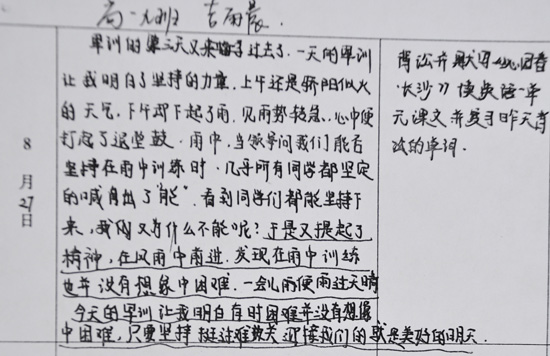 高一九班 吉雨晨.
军训的第三天又来临了过去了.一天的军训
让我明白了坚持的力量.上午还是骄阳似火
的天气,下午却下起了雨.见雨势较急,心中便
打起了退堂鼓.雨中,当领导问我们能否
坚持在雨中训练时,几乎所有同学都坚定
的喊出了"能".看到同学们都能坚持下
来,我们又为什么不能呢?于是又提起了
精神,在风雨中前进.发现在雨中训练
也并没有想象中困难.一会儿雨便雨过天晴
今天的军训让我明白有时困难并没有想像
中困难,只要坚持挺过难教关迎接我们的就是美好的明天.
8月27日
背诵并默写《沁园春
长沙》预读第一单
元课文并复习昨天背
过的单词.